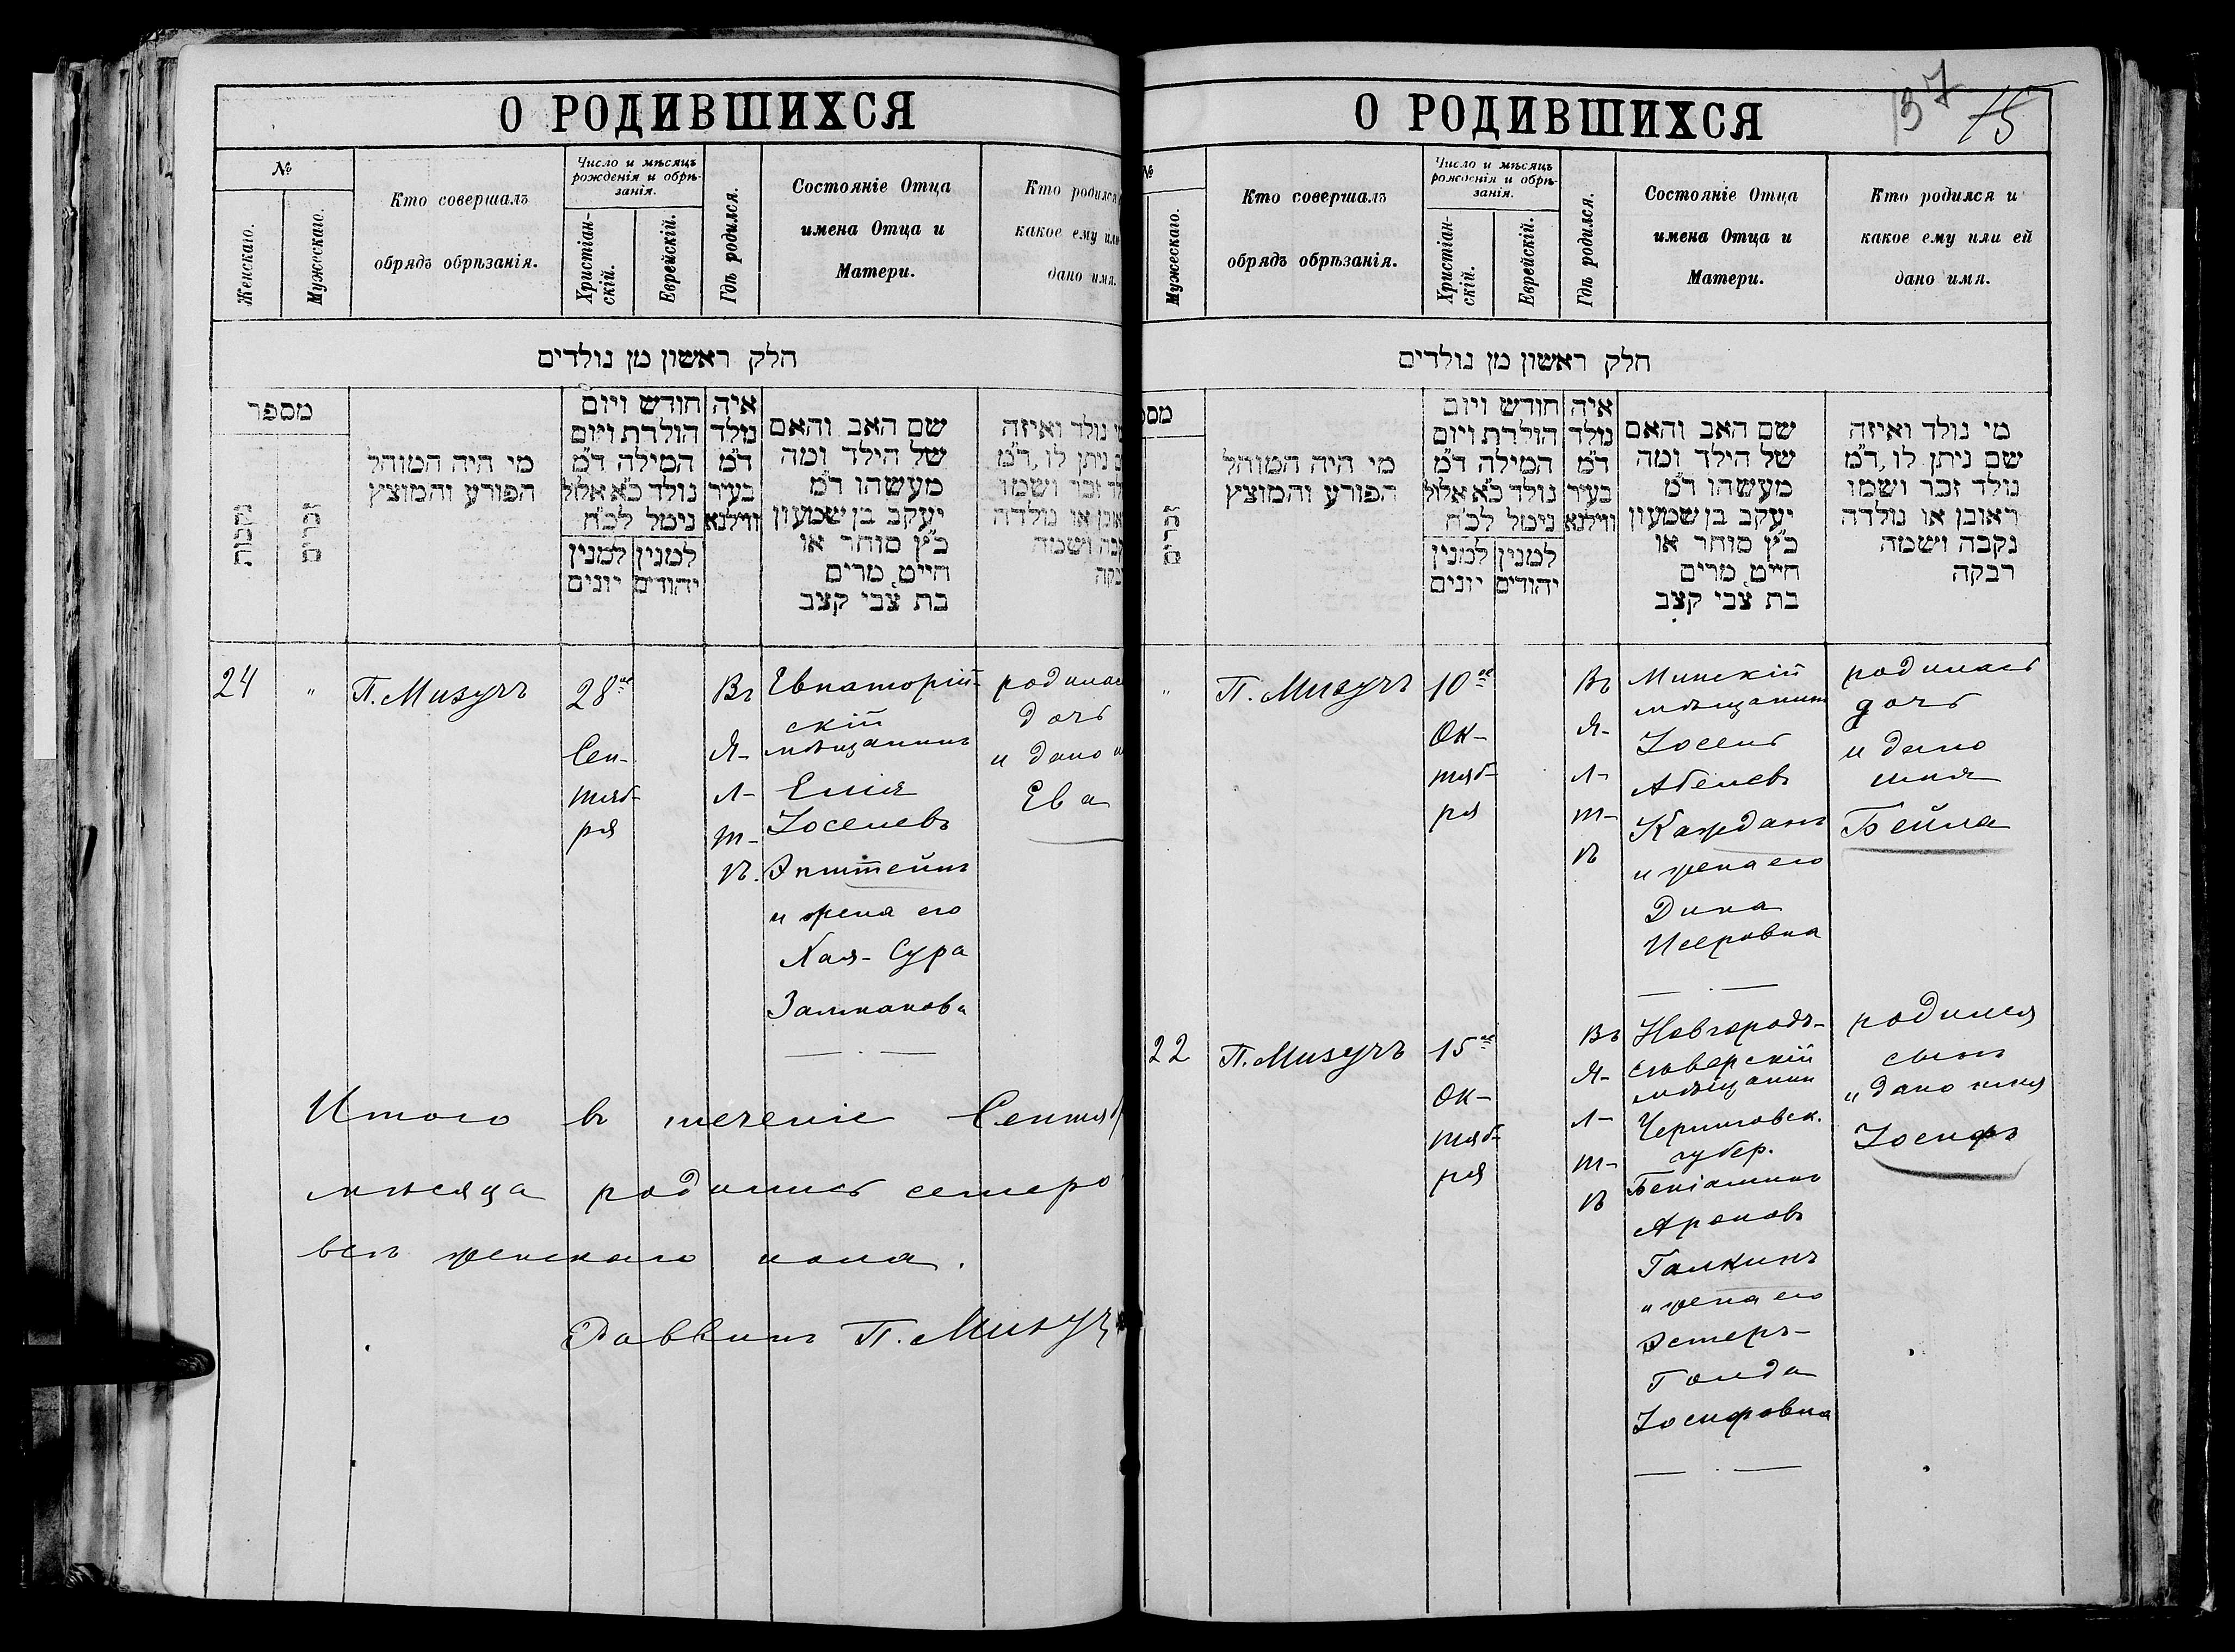 О РОДИВШИХСЯ
№
Женскаго.
Мужескаго.
Кто совершалъ
обрядъ обрѣзанія.
Число и мѣсяцъ
рожденія и обрѣ-
занія.
Христіан-
скій.
Еврейскій.
Гдѣ родился.
Состояніе Отца
имена Отца и
Матери.
Кто родился
какое ему или
дано имя.
חלק ראשון מן נולדים
מספר
נקבות
זכרים
מי היה המוהל
הפורע והמוצץ
חודש ויום
הולדת ויום
המילה ד"מ
נולד כ"א אלול
נימל לכ"ח
למנין
יהודים
למנין
יונים
איה
נולד
ד"מ
בעיר
ווילנא
שם האב והאם
של הילד ומה
מעשהו ד"מ
יעקב בן שמעון
כ"ץ סוחר או
חייט, מרים
בת צבי קצב
נולד ואיזה
ניתן לו, ד"מ
זכר ושמו
או נולדה
ושמה
24
"
П. Мизучъ
28го
Сен-
тяб-
ря
Въ
Я-
л-
т-
ѣ.
Евпаторій-
скій
мѣщанинъ
Елія
Іоселевъ
Эпштейнъ
и жена его
Хая-Сура
Залманова
родилась
дочь
и дано
Ева
Итого въ теченіе Сентяб
мѣсяца родились семеро
всѣ женскаго пола.
Раввинъ П. Мизучъ
О РОДИВШИХСЯ
37
15
№
Мужескаго.
Кто совершалъ
обрядъ обрѣзанія.
Число и мѣсяцъ
рожденія и обрѣ-
занія.
Христіан-
скій.
Еврейскій.
Гдѣ родился.
Состояніе Отца
имена Отца и
Матери.
Кто родился и
какое ему или ей
дано имя.
חלק ראשון מן נולדים
זכרים
מי היה המוהל
הפורע והמוצץ
חודש ויום
הולדת ויום
המילה ד"מ
נולד כ"א אלול
נימל לכ"ח
למנין
יהודים
למנין
יונים
איה
נולד
ד"מ
בעיר
ווילנא
שם האב והאם
של הילד ומה
מעשהו ד"מ
יעקב בן שמעון
כ"ץ סוחר או
חייט, מרים
בת צבי קצב
מי נולד ואיזה
שם ניתן לו, ד"מ
נולד זכר ושמו
ראובן או נולדה
נקבה ושמה
רבקה
"
П. Мизучъ
10го
Ок-
тяб-
ря
Въ
Я-
л-
т-
ѣ
Минскій
мѣщанинъ
Іосель
Абелевъ
Кажданъ
и жена его
Дина
Исеровна
родилась
дочь
и дано
имя
Бейла
22
П. Мизучъ
15го
Ок-
тяб-
ря
Въ
Я-
л-
т-
ѣ
Новгородъ-
сѣверскій
мѣщанин
Черниговск.
губер.
Беніаминъ
Ароновъ
Галкинъ
и жена его
Эстеръ-
Голда
Іосифовна
родился
сынъ
и дано имя
Іосифъ